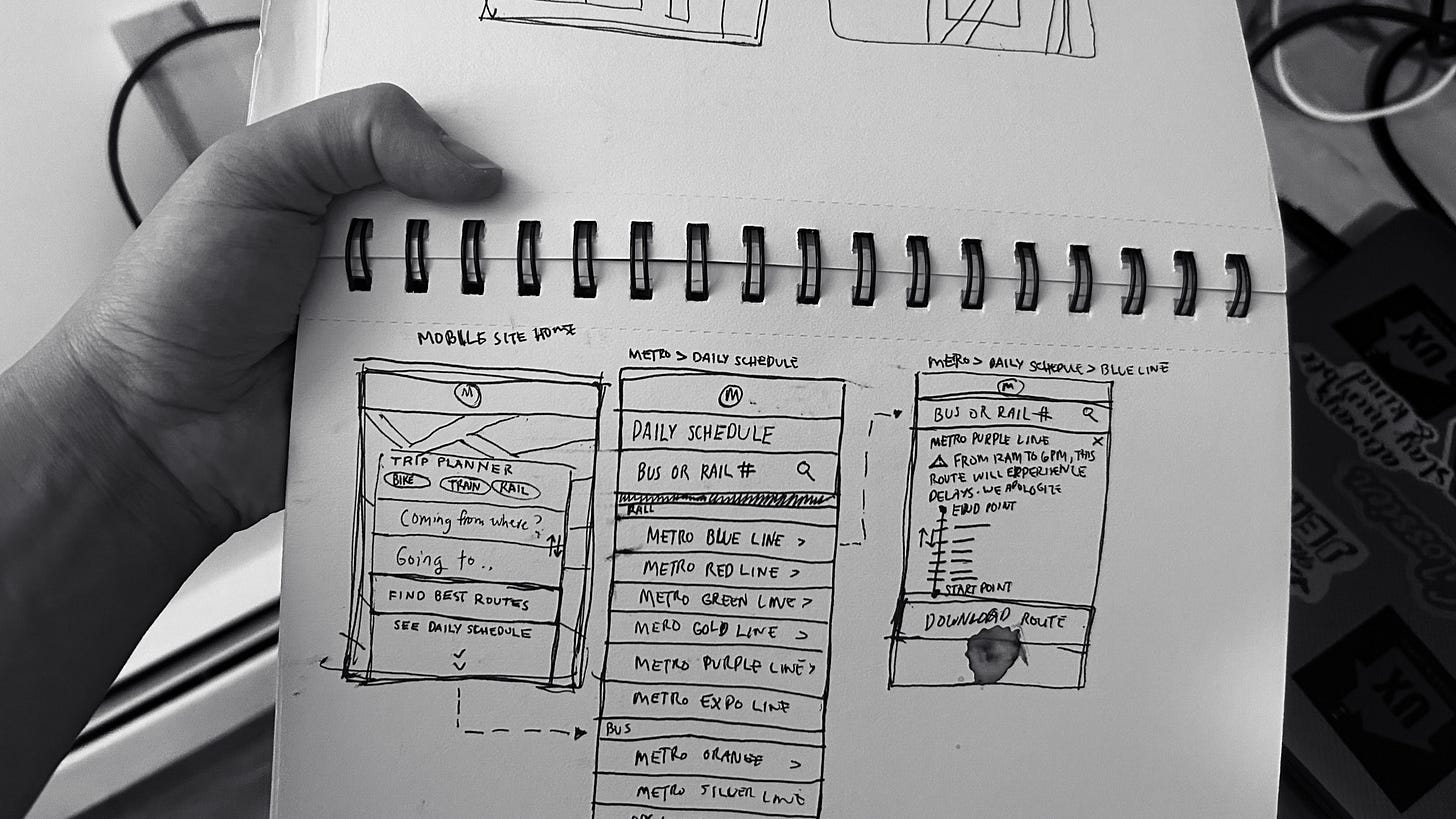 MOBILE SITE HOME
M
TRIP PLANNER
BIKE TRAIN RAIL
Coming from where?
Going to..
FIND BEST ROUTES
SEE DAILY SCHEDULE
METRO > DAILY SCHEDULE
M
DAILY SCHEDULE
BUS OR RAIL #
RAIL
METRO BLUE LINE >
METRO RED LINE >
METRO GREEN LINE >
MERO GOLD LINE >
METRO PURPLE LINE >
METRO EXPO LINE
BUS
METRO ORANGE >
METRO SILVER LINE
METRO > DAILY SCHEDULE > BLUE LINE
M
BUS OR RAIL #
METRO PURPLE LINE X
FROM 12AM TO 6PM, THIS
ROUTE WILL EXPERIENCE
DELAYS. WE APOLOGIZE
END POINT
START POINT
DOWNLOAD ROUTE
UX
UX